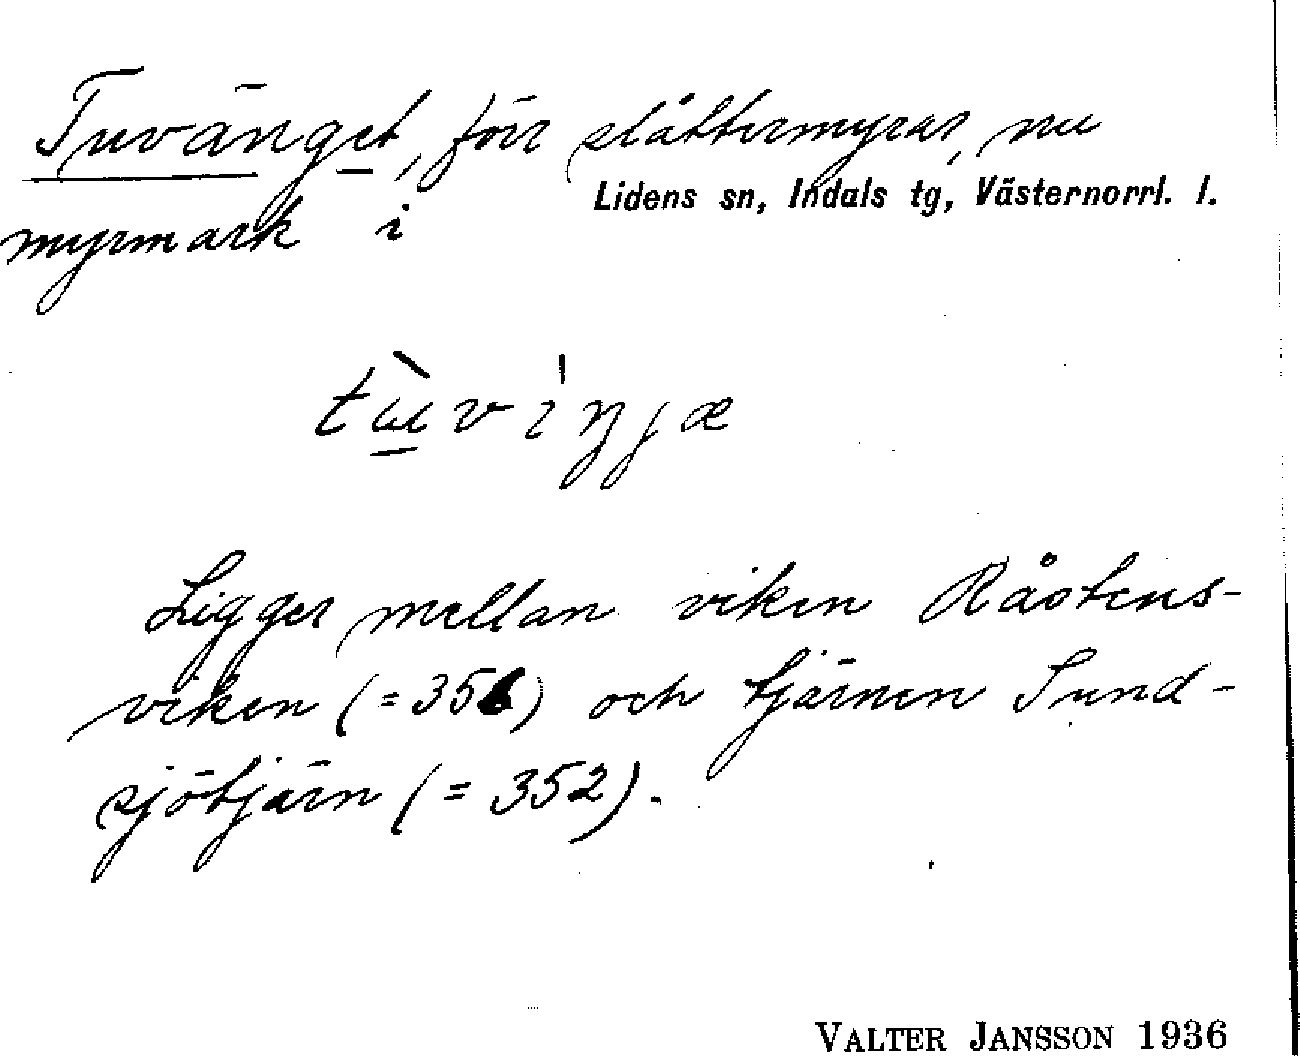 Tuvänget, förr slåttermyrar, nu
Lidens sn, Indals tg, Västernorrl. l.
myrmark i
tùvìŋjæ
Ligger mellan viken Råstens-
viken (=356) och tjärnen Sund-
sjötjärn (= 352).
VALTER JANSSON 1936